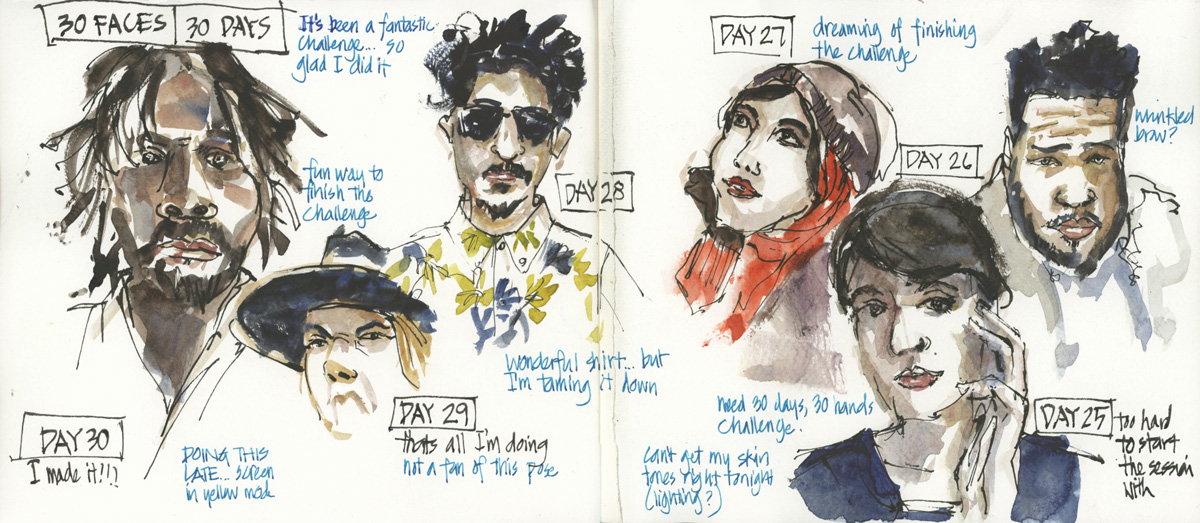 30 FACES 30 DAYS
It's been a fantastic
challenge... so
glad I did it
fun way to
finish the
challenge
DAY 28
wonderful shirt... but
I'm taming it down
DAY 29
thats all I'm doing
not a fan of this pose
DAY 30
I made it!!?
DOING THIS
LATE... screen
in yellow mode
DAY 27
dreaming of finishing
the challenge
DAY 26
wrinkled
brow?
need 30 days, 30 hands
challenge.
can't get my skin
tones right tonight
(lighting?)
DAY 25
too hard
to start
the session
with